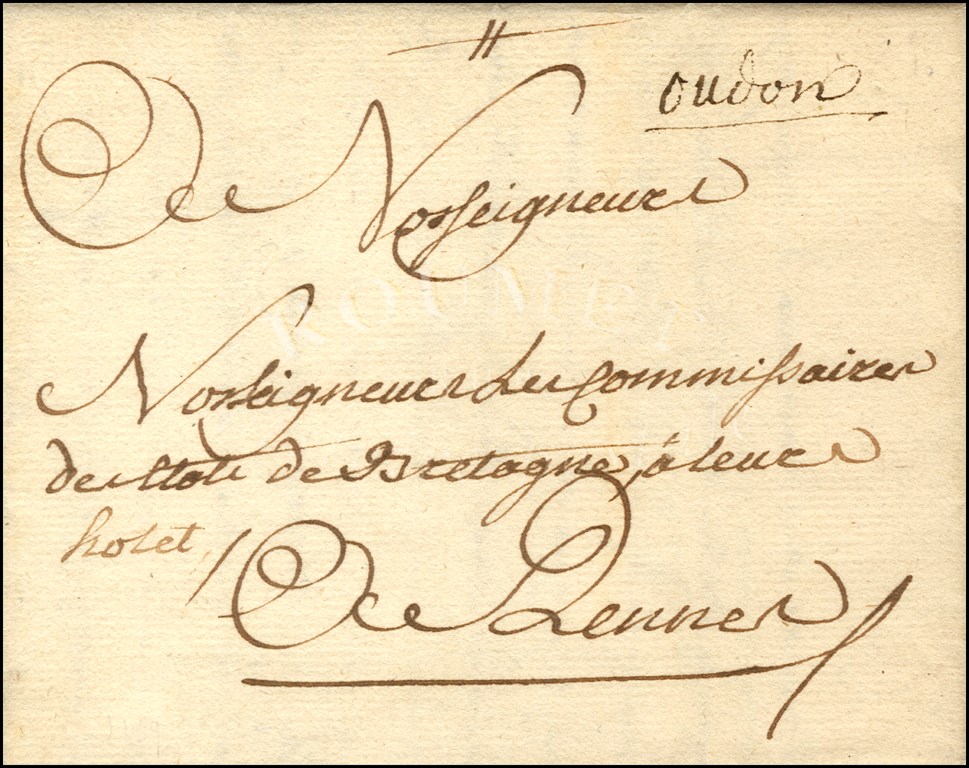 oudon
A Nosseigneurs
Nosseigneurs Les Commissaires
des Etats de Bretagne, a leurs
hotel
A Rennes
ROUMET